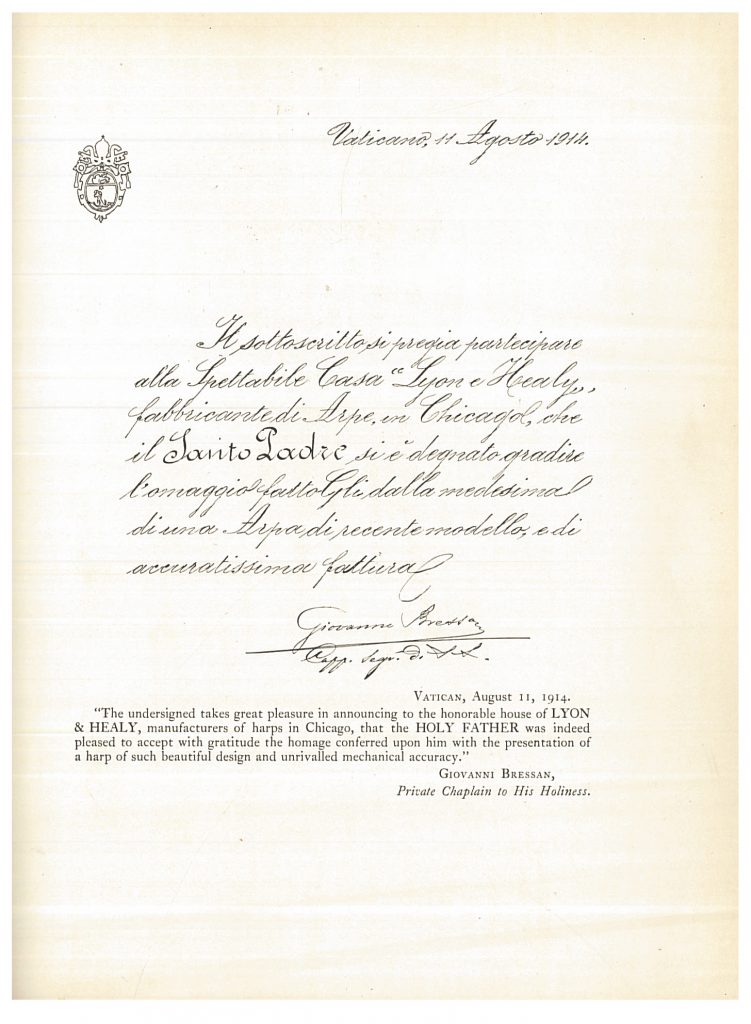 Vaticano, 11 Agosto 1914.
Il sottoscritto si pregia partecipare
alla Spettabile Casa "Lyon e Healy„
fabbricante di Arpe, in Chicago, che
il Santo Padre si è degnato gradire
l'omaggio fattoGli dalla medesima
di una Arpa di recente modello, e di
accuratissima fattura
Giovanni Bressan
Capp. Segr. di S.S.
VATICAN, August 11, 1914.
"The undersigned takes great pleasure in announcing to the honorable house of LYON
& HEALY, manufacturers of harps in Chicago, that the HOLY FATHER was indeed
pleased to accept with gratitude the homage conferred upon him with the presentation of
a harp of such beautiful design and unrivalled mechanical accuracy."
GIOVANNI BRESSAN,
Private Chaplain to His Holiness.